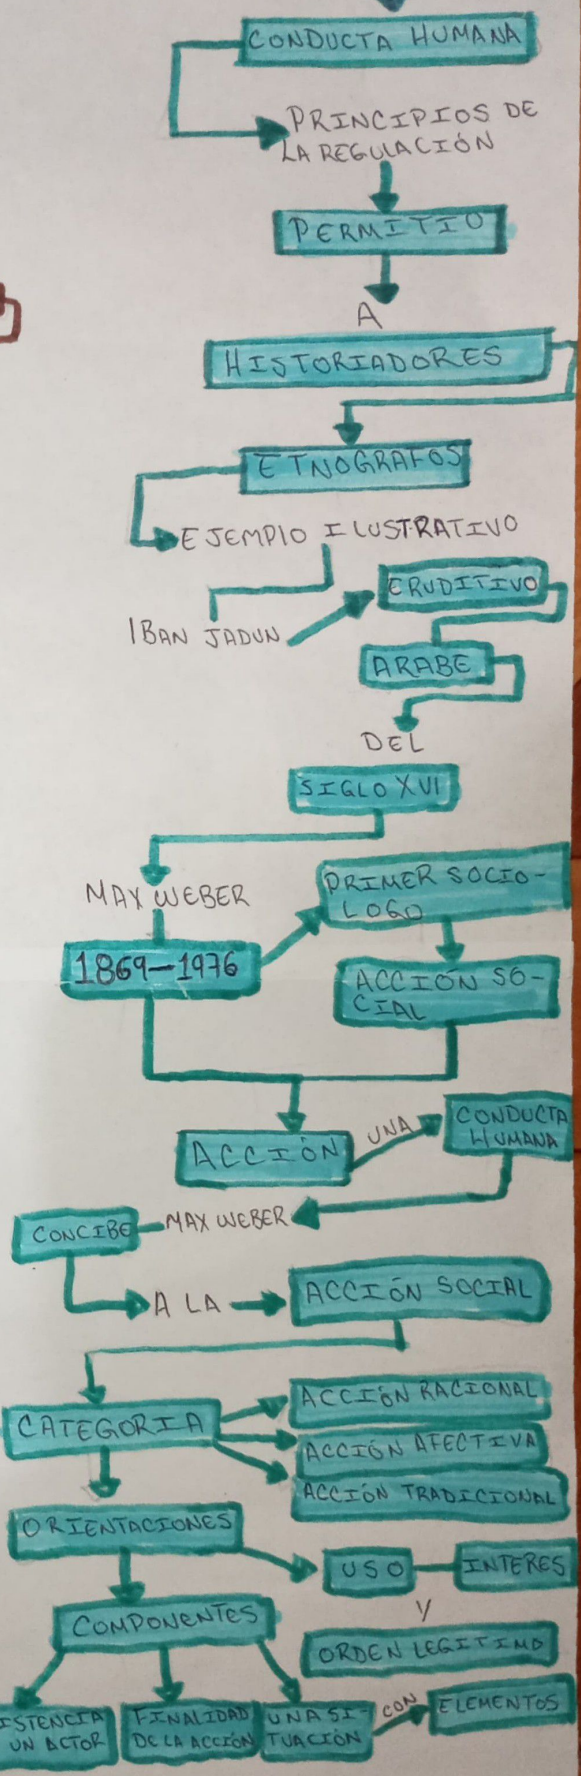 CONDUCTA HUMANA
PRINCIPIOS DE
LA REGULACIÓN
PERMITIO
A
HISTORIADORES
ETNOGRAFOS
EJEMPLO ILUSTRATIVO
ERUDITIVO
IBAN JADUN
ARABE
DEL
SIGLO XVI
MAX WEBER
PRIMER SOCIO-
LOGO
1869-1976
ACCIÓN SO-
CIAL
ACCIÓN
UNA
CONDUCTA
HUMANA
CONCIBE
MAX WEBER
A LA
ACCIÓN SOCIAL
CATEGORIA
ACCIÓN RACIONAL
ACCIÓN AFECTIVA
ACCIÓN TRADICIONAL
ORIENTACIONES
USO
INTERES
Y
ORDEN LEGITIMO
COMPONENTES
ISTENCIA
UN ACTOR
FINALIDAD
DE LA ACCIÓN
UNA SI-
TUACIÓN
CON
ELEMENTOS